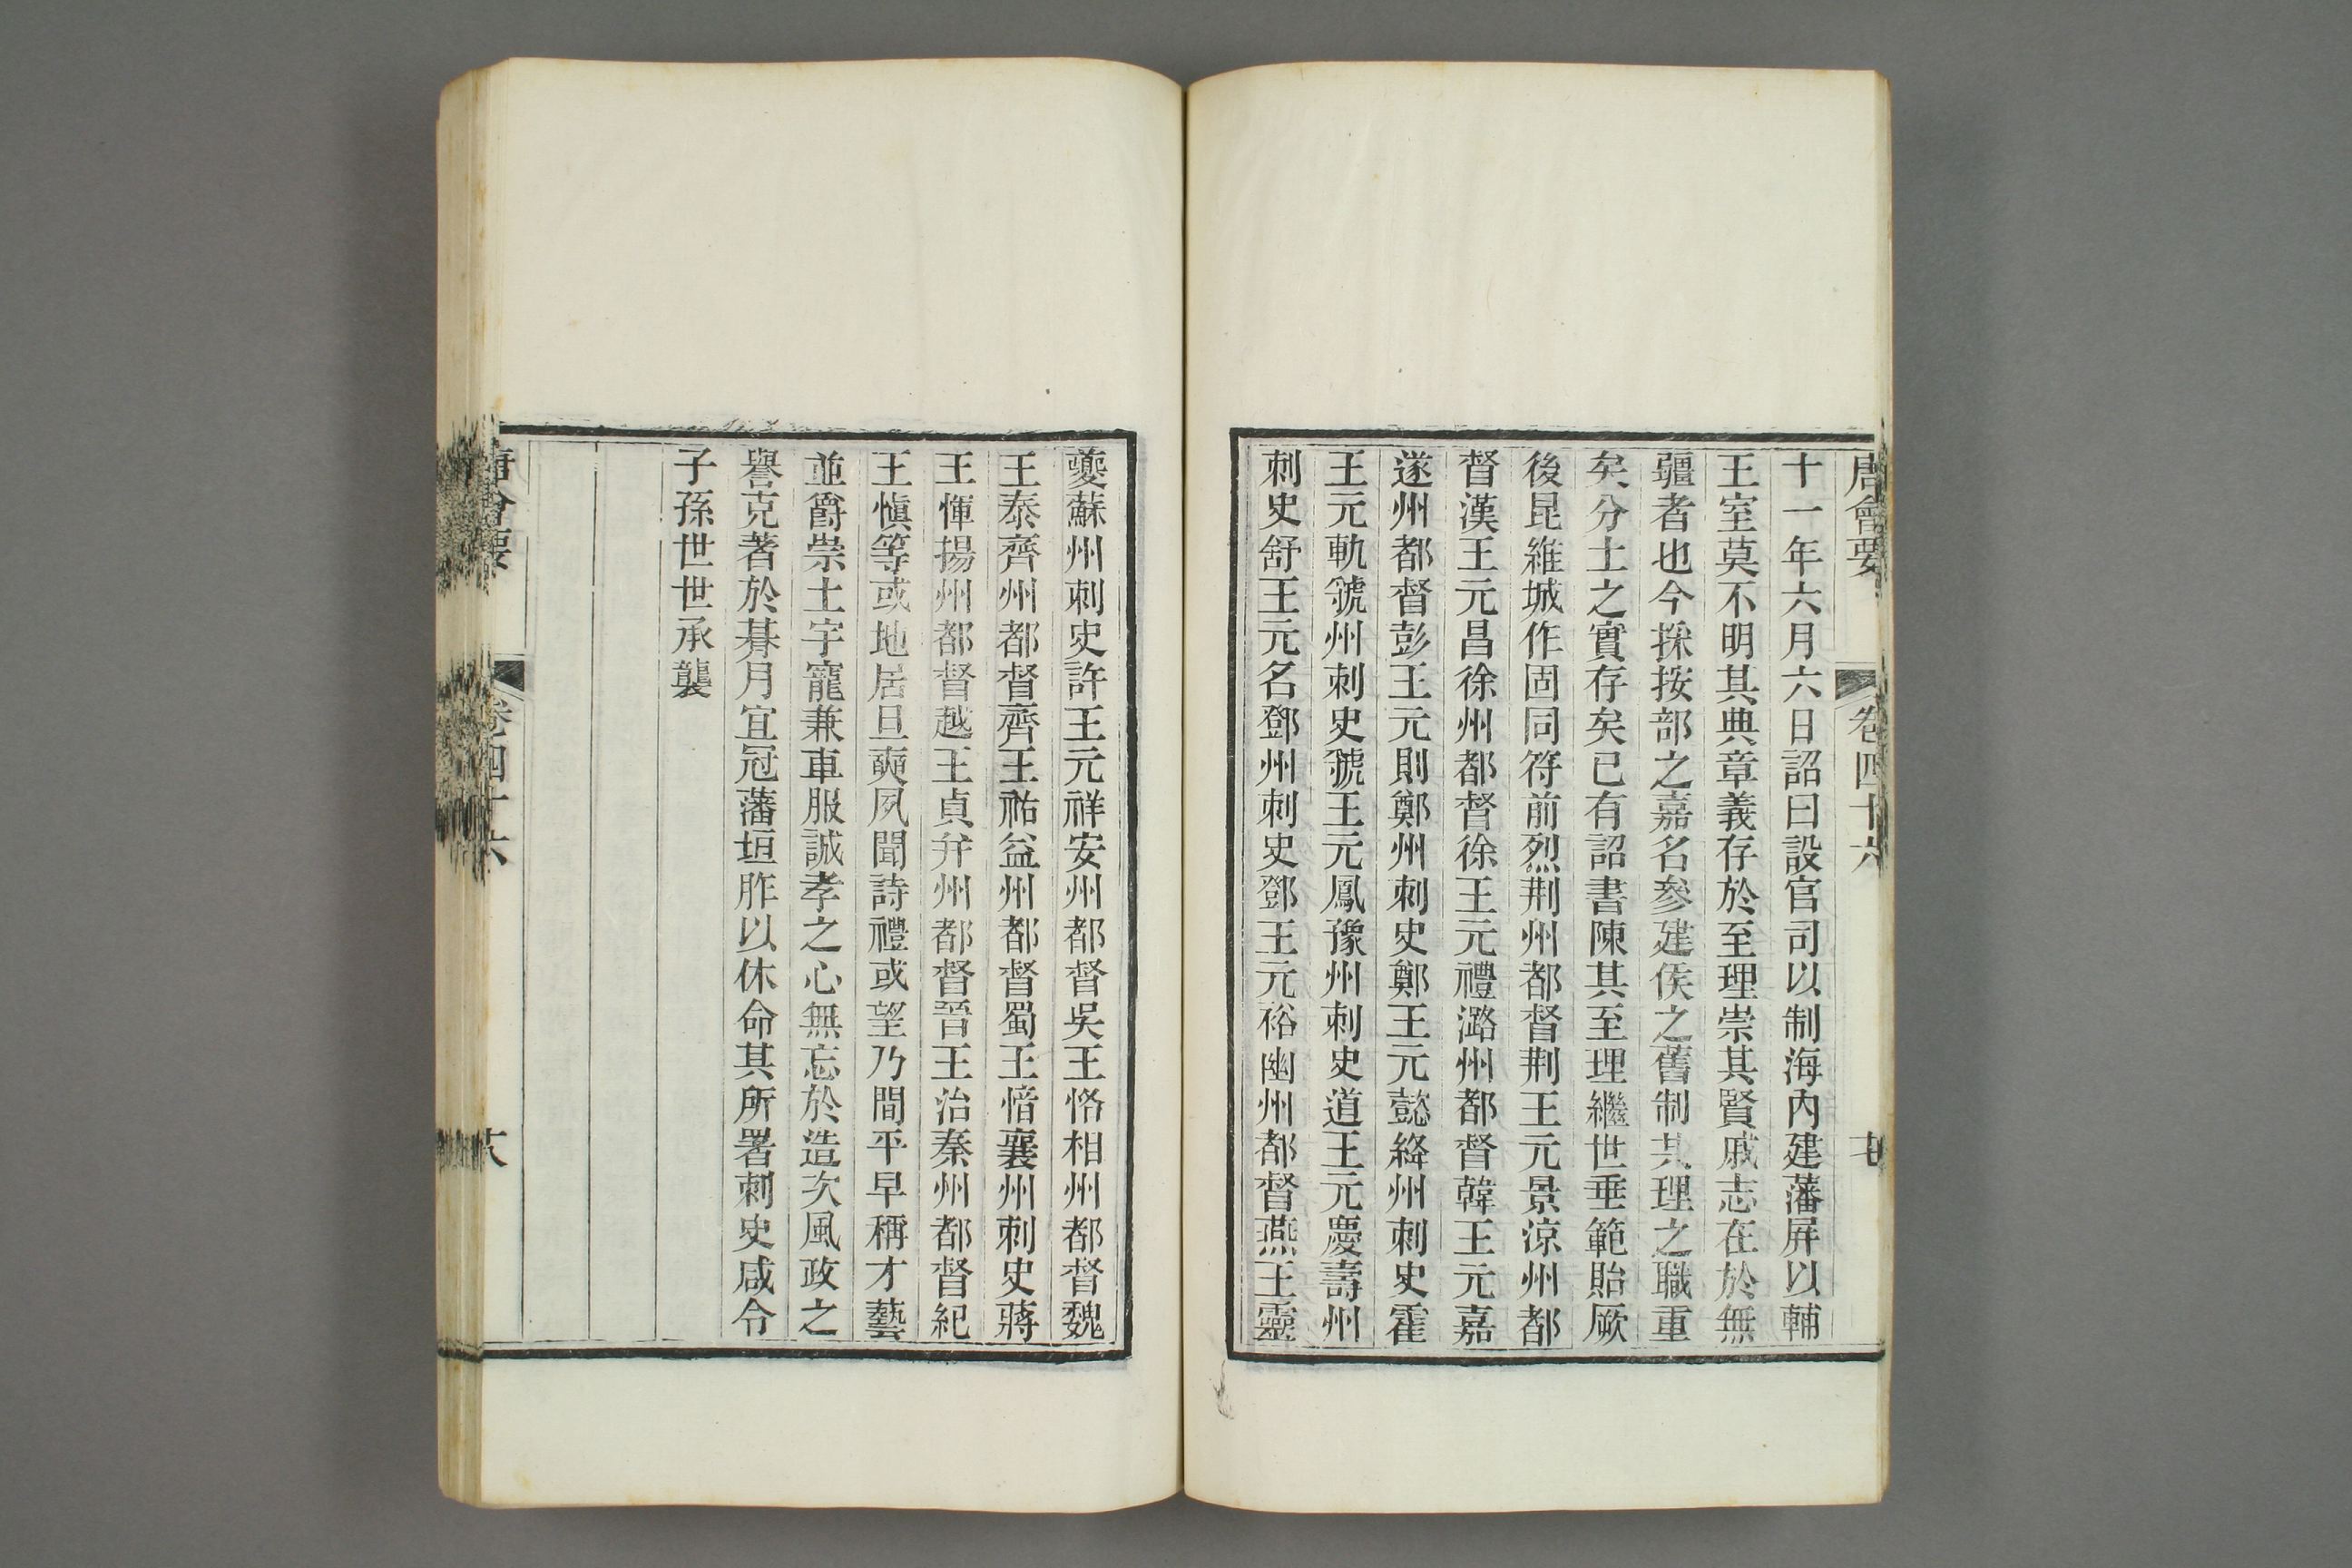 唐會要 卷四十六
十一年六月六日詔曰設官司以制海內建藩屏以輔
王室莫不明其典章義存於至理崇其賢戚志在於無
疆者也今採按部之嘉名參建侯之舊制共理之職重
矣分土之實存矣已有詔書陳其至理繼世垂範貽厥
後昆維城作固同符前烈荆州都督荆王元景涼州都
督漢王元昌徐州都督徐王元禮潞州都督韓王元嘉
遂州都督彭王元則鄭州刺史鄭王元懿絳州刺史霍
王元軌虢州刺史虢王元鳳豫州刺史道王元慶壽州
刺史舒王元名鄧州刺史鄧王元裕幽州都督燕王靈
夔蘇州刺史許王元祥安州都督吳王恪相州都督魏
王泰齊州都督齊王祐益州都督蜀王愔襄州刺史蔣
王惲揚州都督越王貞并州都督晉王治秦州都督紀
王愼等或地居旦奭夙聞詩禮或望乃間平早稱才藝
並爵崇土宇寵兼車服誠孝之心無忘於造次風政之
譽克著於朞月宜冠藩垣胙以休命其所署刺史咸令
子孫世世承襲
唐會要 卷四十六